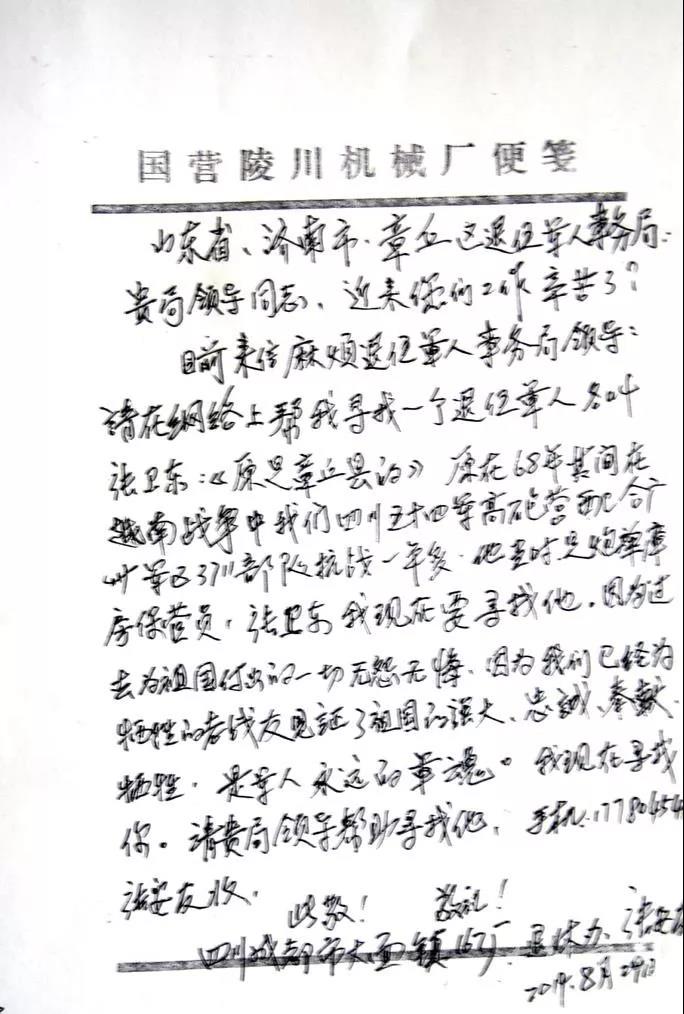 国营陵川机械厂便笺
山东省、济南市、章丘区退伍军人事务局：
贵局领导同志、近来您们工作辛苦了？
目前来信麻烦退伍军人事务局领导：
请在网络上帮我寻找一个退伍军人名叫
张卫东：《原是章丘县的》原在68年其间在
越南战争中我们四川五十四军高炮营配合广
州军区3711部队抗战一年多．他当时是炮弹库
房保管员．张卫东我现在要寻找他．因为过
去为祖国付出的一切无怨无悔．因为我们已经为
牺牲的老战友见证了祖国的强大、忠誠、奉献、
牺牲．是军人永远的军魂。我现在寻找
你。请贵局领导帮助寻找他．手机:17780454
张安友收．
此致！敬礼！
四川成都市大面镇167厂．退休办．张安友
2019.8月29日